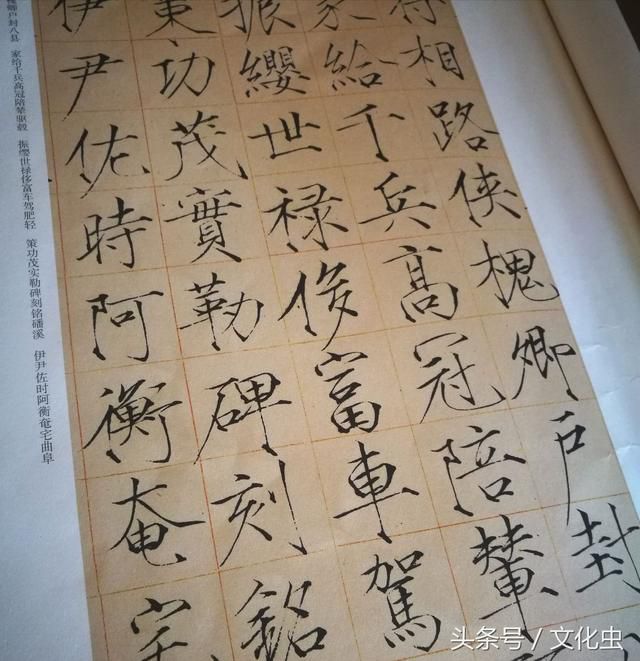 将相路俠槐卿户封
家給千兵高冠陪輦
振纓世禄侈富車駕
策功茂實勒碑刻銘
伊尹佐時阿衡奄宅
卿户封八县 家给千兵高冠陪辇驱毂 振缨世禄侈富车驾肥轻 策功茂实勒碑刻铭磻溪 伊尹佐时阿衡奄宅曲阜
头条号 / 文化虫